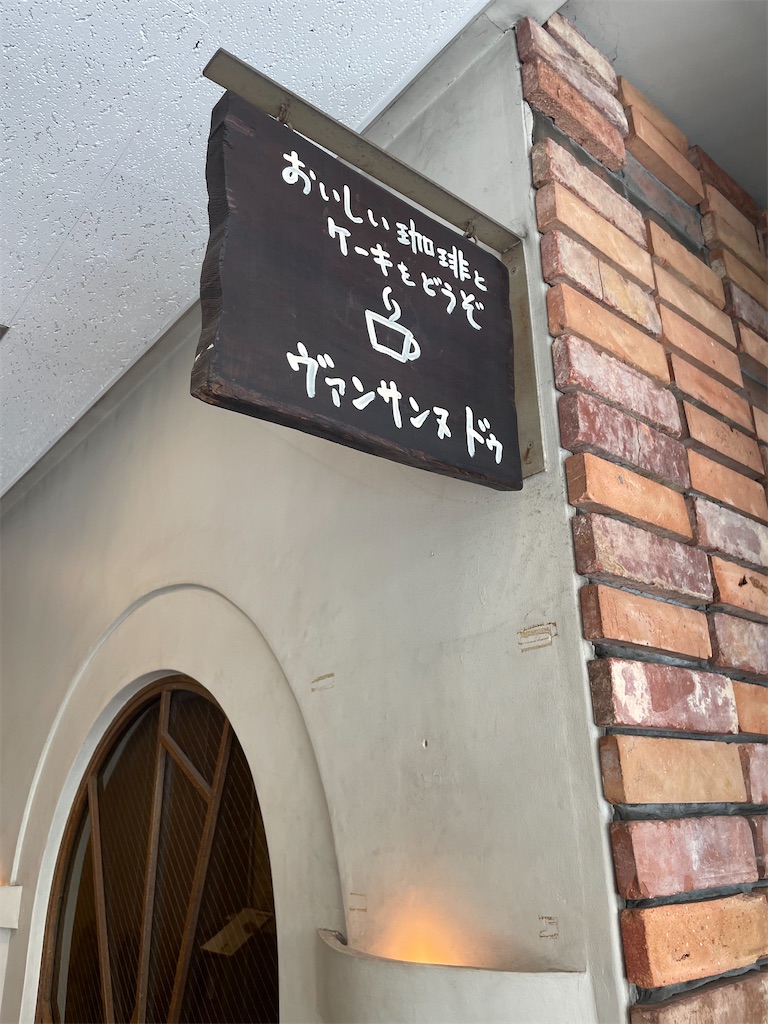 おいしい珈琲と
ケーキをどうぞ
ヴァンサンヌ ドゥ